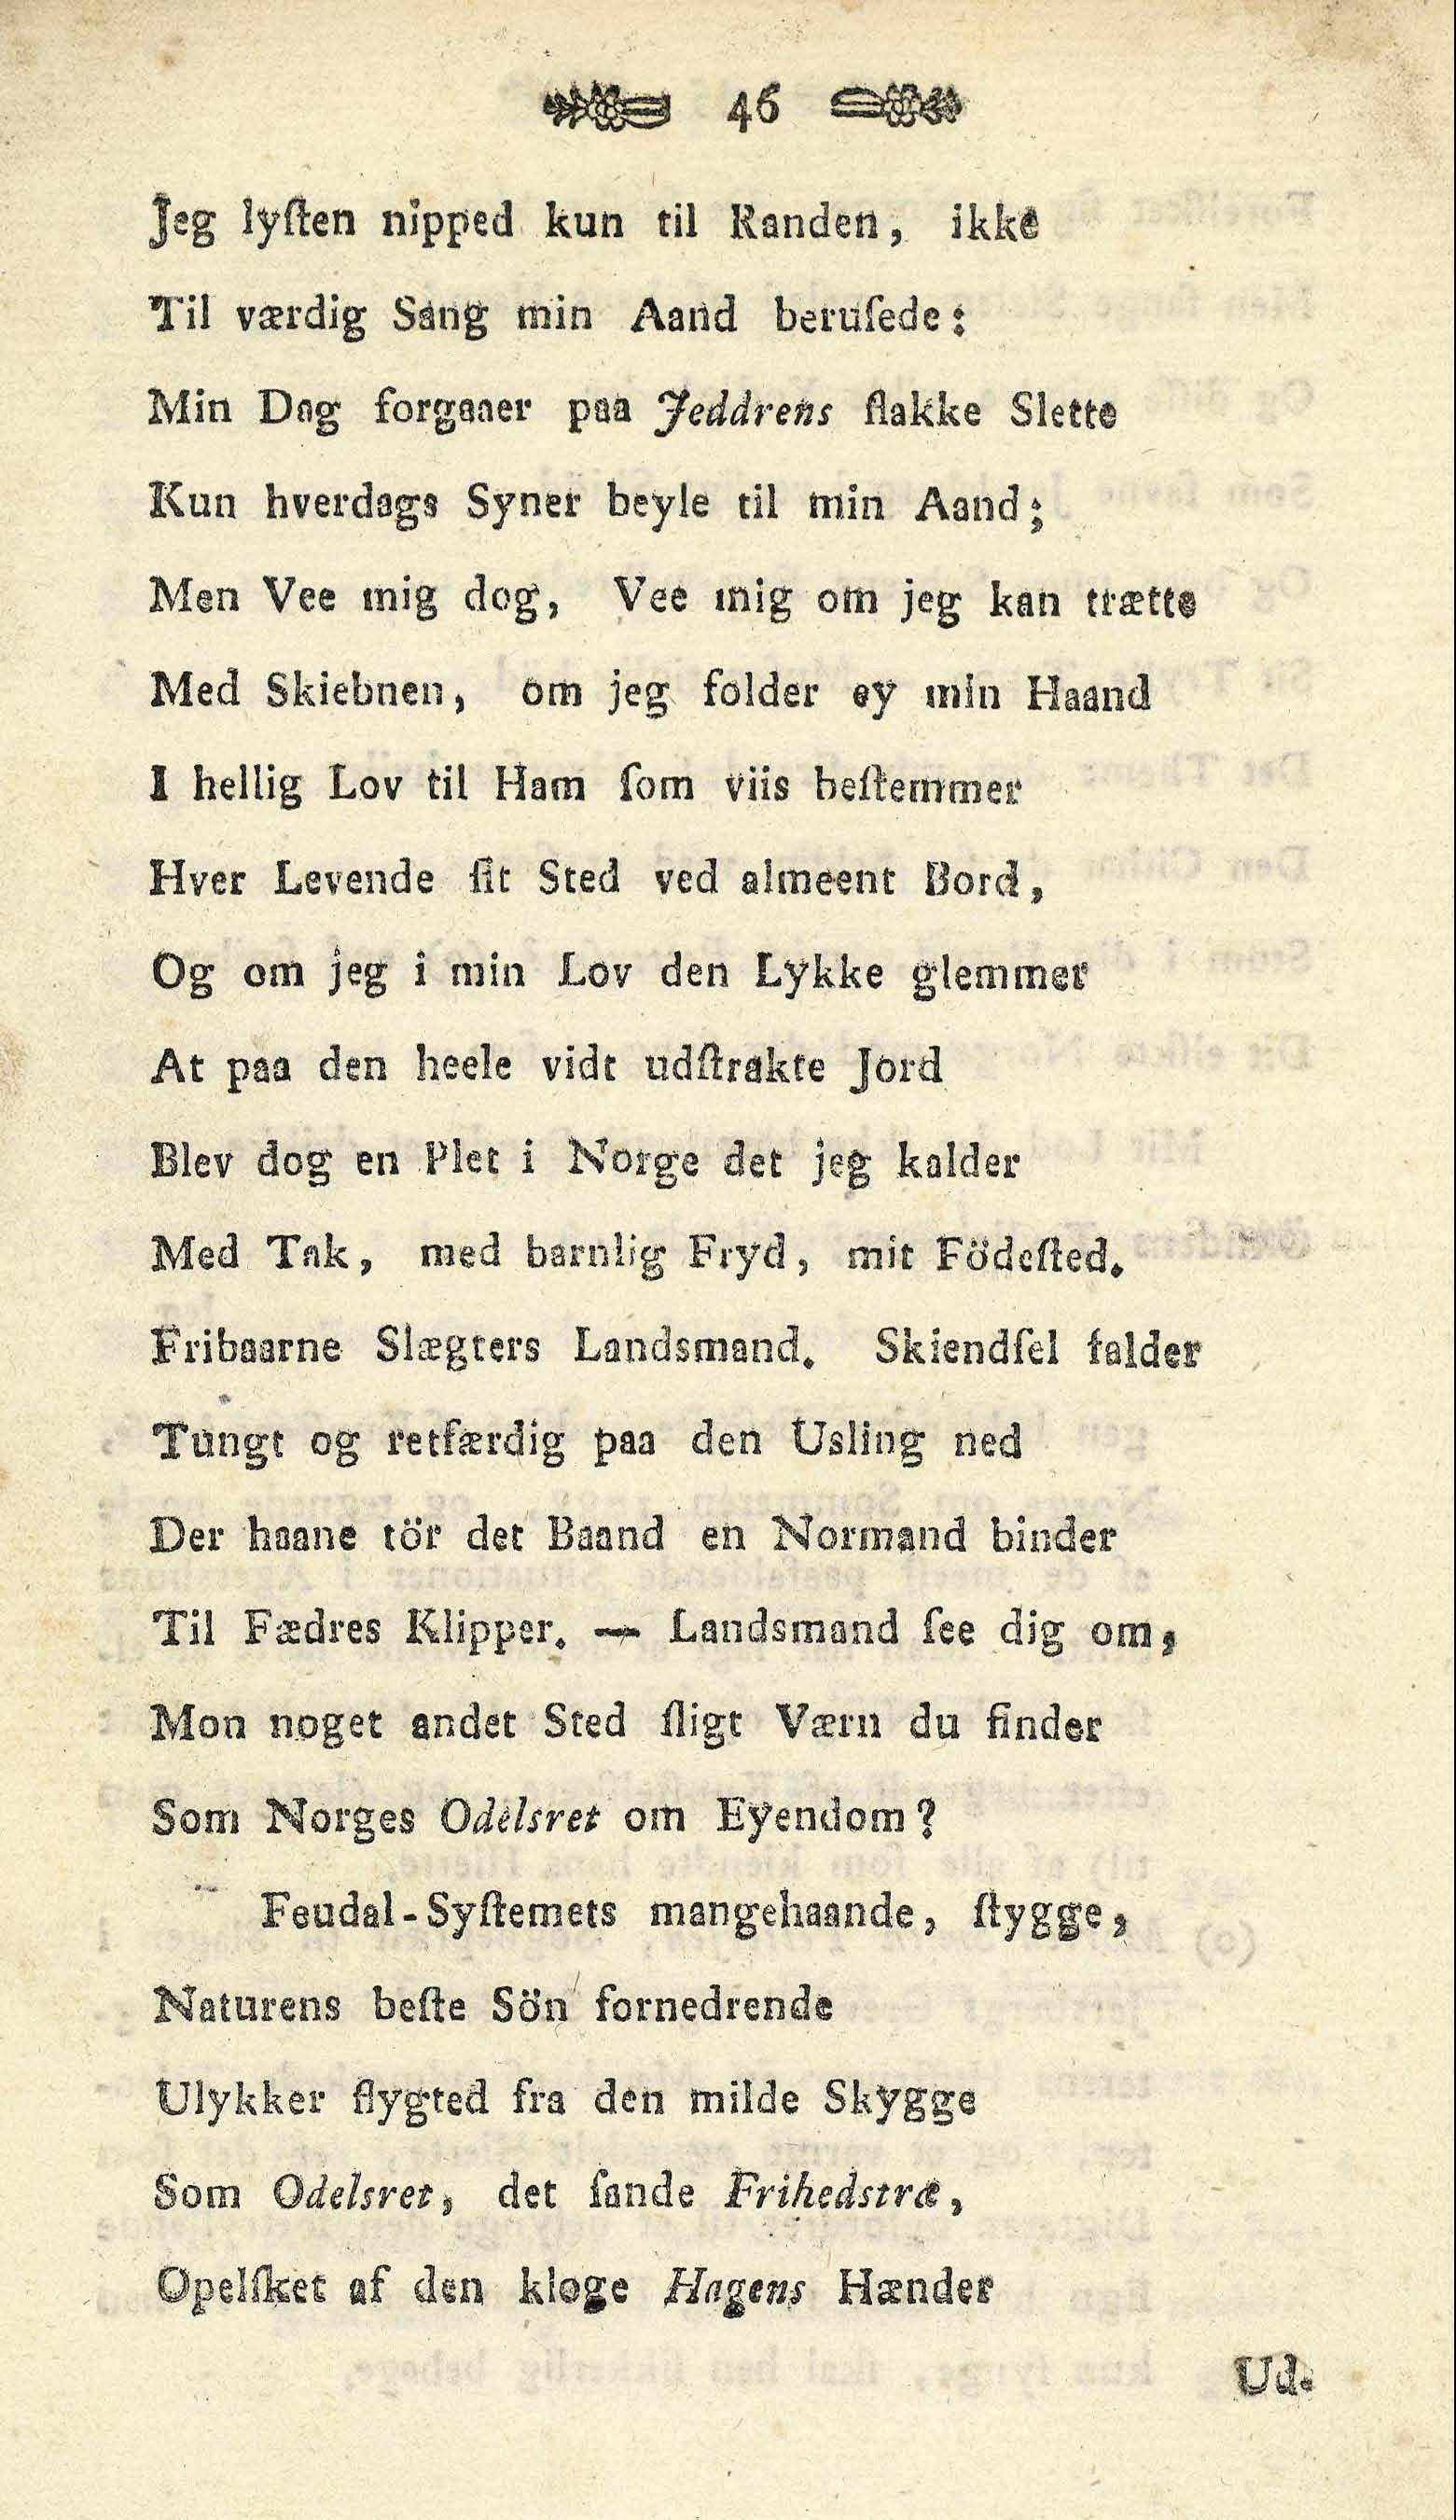 46
Jeg lyſten nipped kun til Randen, ikke
Til værdig Sang min Aand beruſede:
Min Dag forgaaer paa Jeddrens flakke Slette
Kun hverdags Syner beyle til min Aand;
Men Vee mig dog, Vee mig om jeg kan trætte
Med Skiebnen, om jeg folder ey min Haand
I hellig Lov til Ham ſom viis beſtemmer
Hver Levende ſit Sted ved almeent Bord,
Og om jeg i min Lov den Lykke glemmer
At paa den heele vidt udſtrakte Jord
Blev dog en Plet i Norge det jeg kalder
Med Tak, med barnlig Fryd, mit Födeſted.
Fribaarne Slægters Landsmand. Skiendſel falder
Tungt og retfærdig paa den Usling ned
Der haane tör det Baand en Normand binder
Til Fædres Klipper. — Landsmand ſee dig om,
Mon noget andet Sted ſligt Værn du finder
Som Norges Odelsret om Eyendom?
Feudal-Syſtemets mangehaande, ſtygge,
Naturens beſte Sön fornedrende
Ulykker flygted fra den milde Skygge
Som Odelsret, det ſande Frihedstræ,
Opelſket af den kloge Hagens Hænder
Ud.